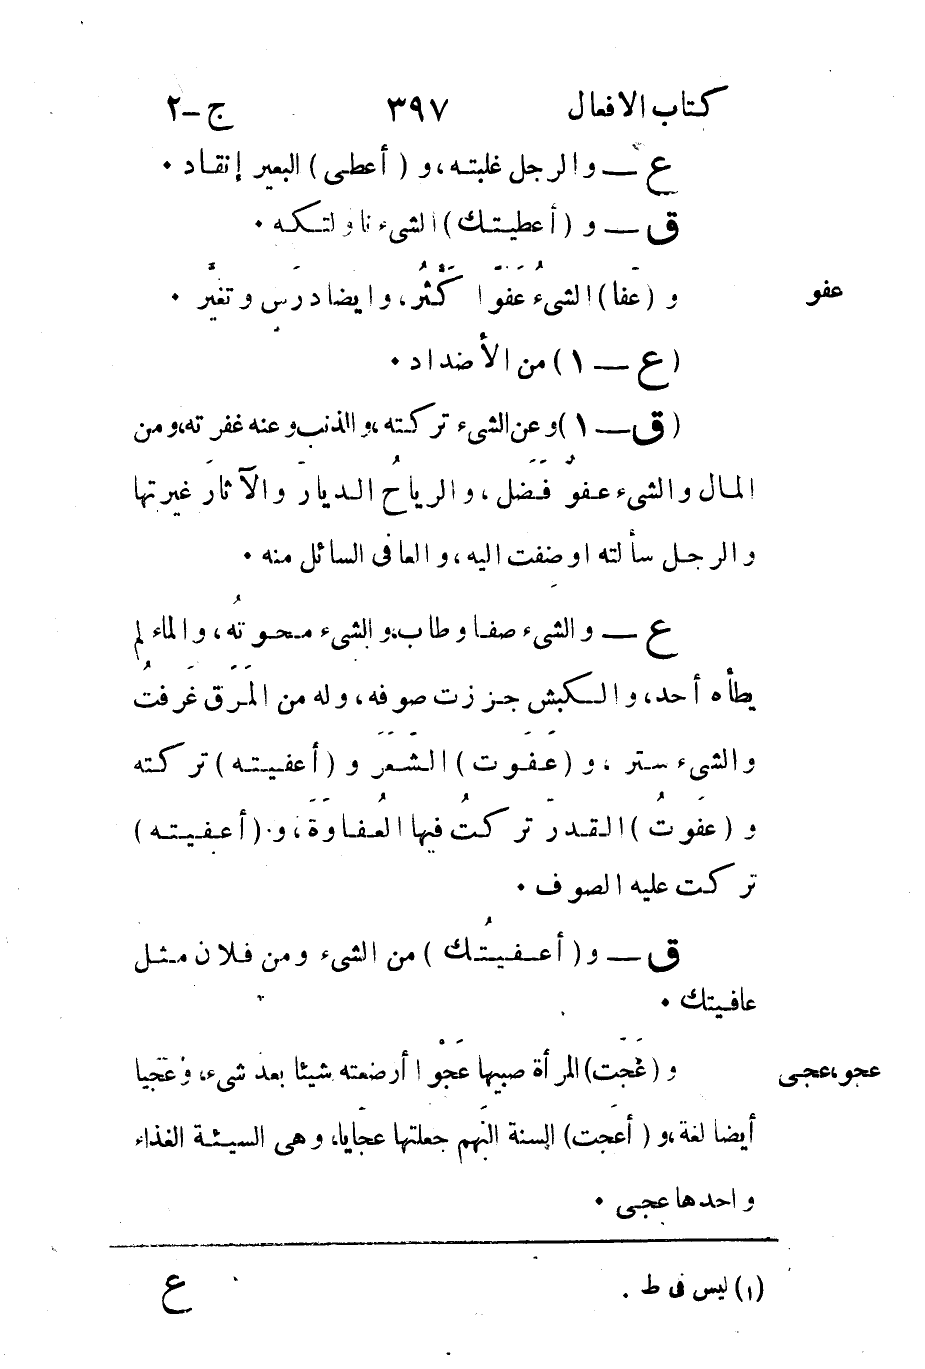 كتاب الافعال ٣٩٧ ج-٢
ع — والرجل غلبته، و (أعطى) البعير إنقاد ٠
ق — و (أعطيتك) الشىء ناولتكه ٠
عفو و (عَفا) الشىءُ عَفوًا كَثُرَ، وايضا درَس وتغيَّر ٠
(ع — ١) من الأضداد ٠
(ق — ١) وعن الشىء تركته، والذنب وعنه غفرته، ومن
المال والشىء عفوٌ فَضَل، والرياحُ الديارَ والآثارَ غيرتها
والرجل سألته اوضفت اليه، والعافى السائل منه ٠
ع — والشىء صفا وطاب، والشىء محوتُه، والماء لم
يطأه أحد، والكبش جززت صوفه، وله من المَرَق غَرفتُ
والشىء ستر، و (عفوت) الشَعَرَ و (أعفيته) تركته
و (عفَوتُ) القدرَ تركتُ فيها العُفاوَةَ، و (أعفيته)
تركت عليه الصوف ٠
ق — و (أعفيتُك) من الشىء ومن فلان مثل
عافيتك ٠
عجو،عجى و (عَجَت) المرأة صبيها عَجْوًا أرضعته شيئا بعد شىء، وعَجَيا
أيضا لغة، و (أعجت) السنة البَهم جعلتها عجايا، وهى السيئة الغذاء
واحدها عجى ٠
(١) ليس فى ط .
ع